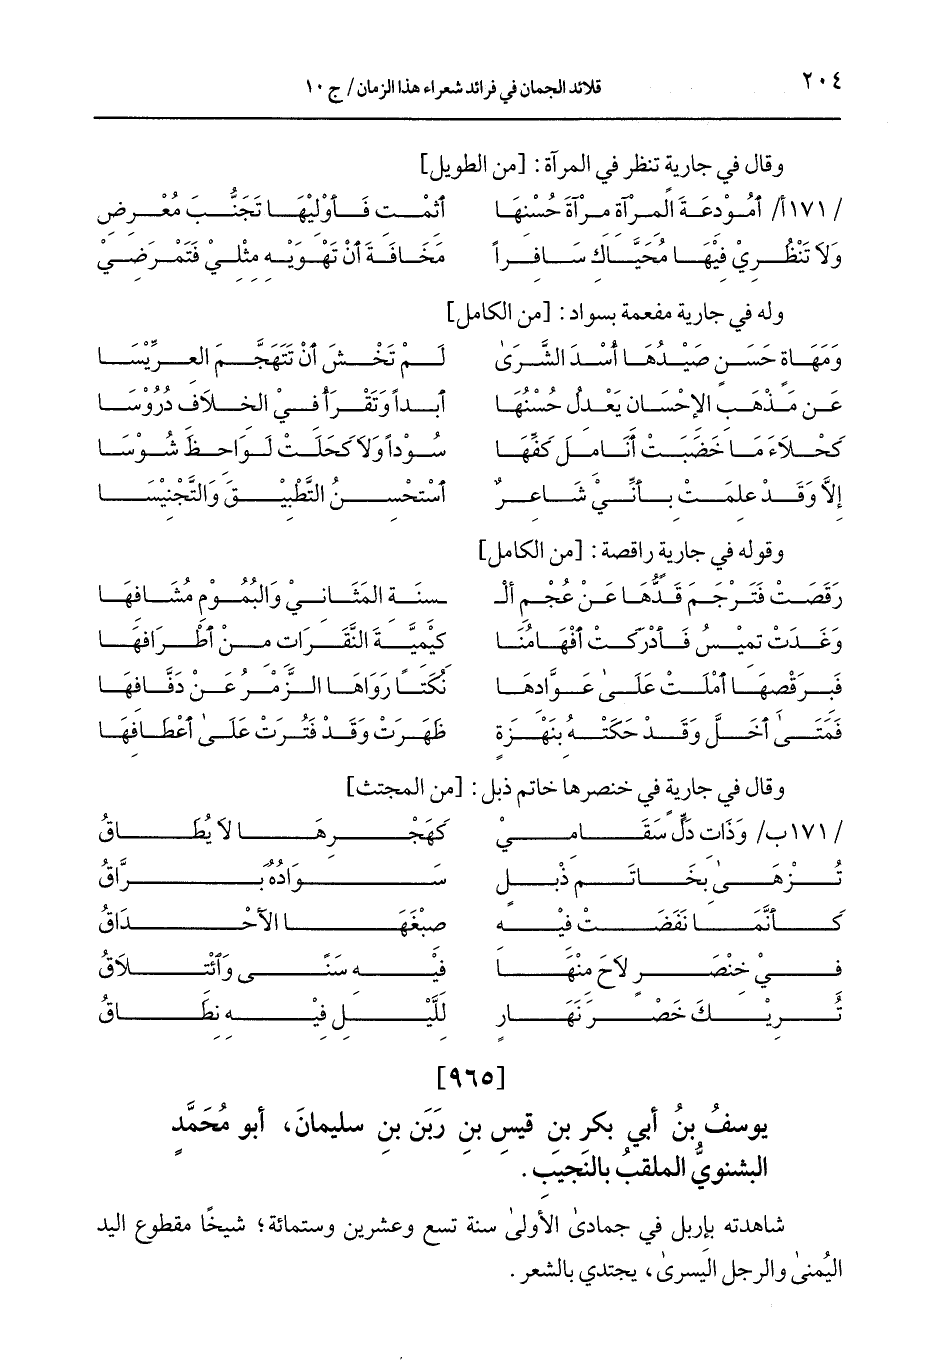 ٢٠٤
قلائد الجمان في فرائد شعراء هذا الزمان / ج ١٠
وقال في جارية تنظر في المرآة: [من الطويل]
/ ١٧١أ/ أَمُودِعَةَ المِرْآةِ مِرْآةَ حُسْنِهَا أَثِمْتِ فَأَوْلِيْهَا تَجَنُّبَ مُعْرِضِ
وَلَا تَنْظُرِيْ فِيْهَا مُحَيَّاكِ سَافِراً مَخَافَةَ أَنْ تَهْوَيْهِ مِثْلِيْ فَتَمْرَضِيْ
وله في جارية مفعمة بسواد: [من الكامل]
وَمَهَاةِ حُسْنٍ صَيْدُهَا أُسْدَ الشَّرَىٰ لَمْ تَخْشَ أَنْ تَتَهَجَّمَ العِرِّيْسَا
عَنْ مَذْهَبِ الإِحْسَانِ يَعْدِلُ حُسْنُهَا أَبَداً وَتَقْرَأُ فِيْ الخِلَافِ دُرُوْسَا
كَحْلَاءَ مَا خَضَبَتْ أَنَامِلَ كَفِّهَا سُوْداً وَلَا كَحَلَتْ لَوَاحِظَ شُوْسَا
إِلَّا وَقَدْ عَلِمَتْ بِأَنِّيْ شَاعِرٌ أَسْتَحْسِنُ التَّطْبِيْقَ وَالتَّجْنِيْسَا
وقوله في جارية راقصة: [من الكامل]
رَقَصَتْ فَتَرْجَمَ قَدُّهَا عَنْ عُجْمِ أَلْـ ـسِنَةِ المَثَانِيْ وَالبُمُوْمِ مُشَافِهَا
وَغَدَتْ تَمِيْسُ فَأَدْرَكَتْ أَفْهَامُنَا كَيْمِيَّةَ النَّقَرَاتِ مِنْ أَطْرَافِهَا
فَبِرَقْصِهَا أَمْلَتْ عَلَىٰ عَوَّادِهَا نُكَتاً رَوَاهَا الزَّمْرُ عَنْ دَفَّافِهَا
فَمَتَىٰ أَخَلَّ وَقَدْ حَكَتْهُ بِنَهْزَةٍ ظَهَرَتْ وَقَدْ فَتُرَتْ عَلَىٰ أَعْطَافِهَا
وقال في جارية في خنصرها خاتم ذبل: [من المجتث]
/ ١٧١ب/ وَذَاتِ دَلٍّ سَقَامِيْ كَهَجْرِهَا لَا يُطَاقُ
تُزْهَىٰ بِخَاتَمِ ذَبْلٍ سَوَادُهُ بَرَّاقُ
كَأَنَّمَا نَفَضَتْ فِيْهِ صِبْغَهَا الأَحْدَاقُ
فِيْ خِنْصَرٍ لَاحَ مِنْهَا فِيْهِ سَنًى وَأَئْتِلَاقُ
تُرِيْكَ خَصْرَ نَهَارٍ لِلَّيْلِ فِيْهِ نِطَاقُ
[٩٦٥]
يوسفُ بنُ أبي بكرِ بنِ قيسِ بنِ رَبَنَ بنِ سليمانَ، أبو مُحَمَّدٍ
البشنويُّ الملقبُ بالنَجيبِ.
شاهدته بإربل في جمادىٰ الأولىٰ سنة تسع وعشرين وستمائة؛ شيخًا مقطوع اليد
اليُمنىٰ والرجل اليَسرىٰ، يجتدي بالشعر.